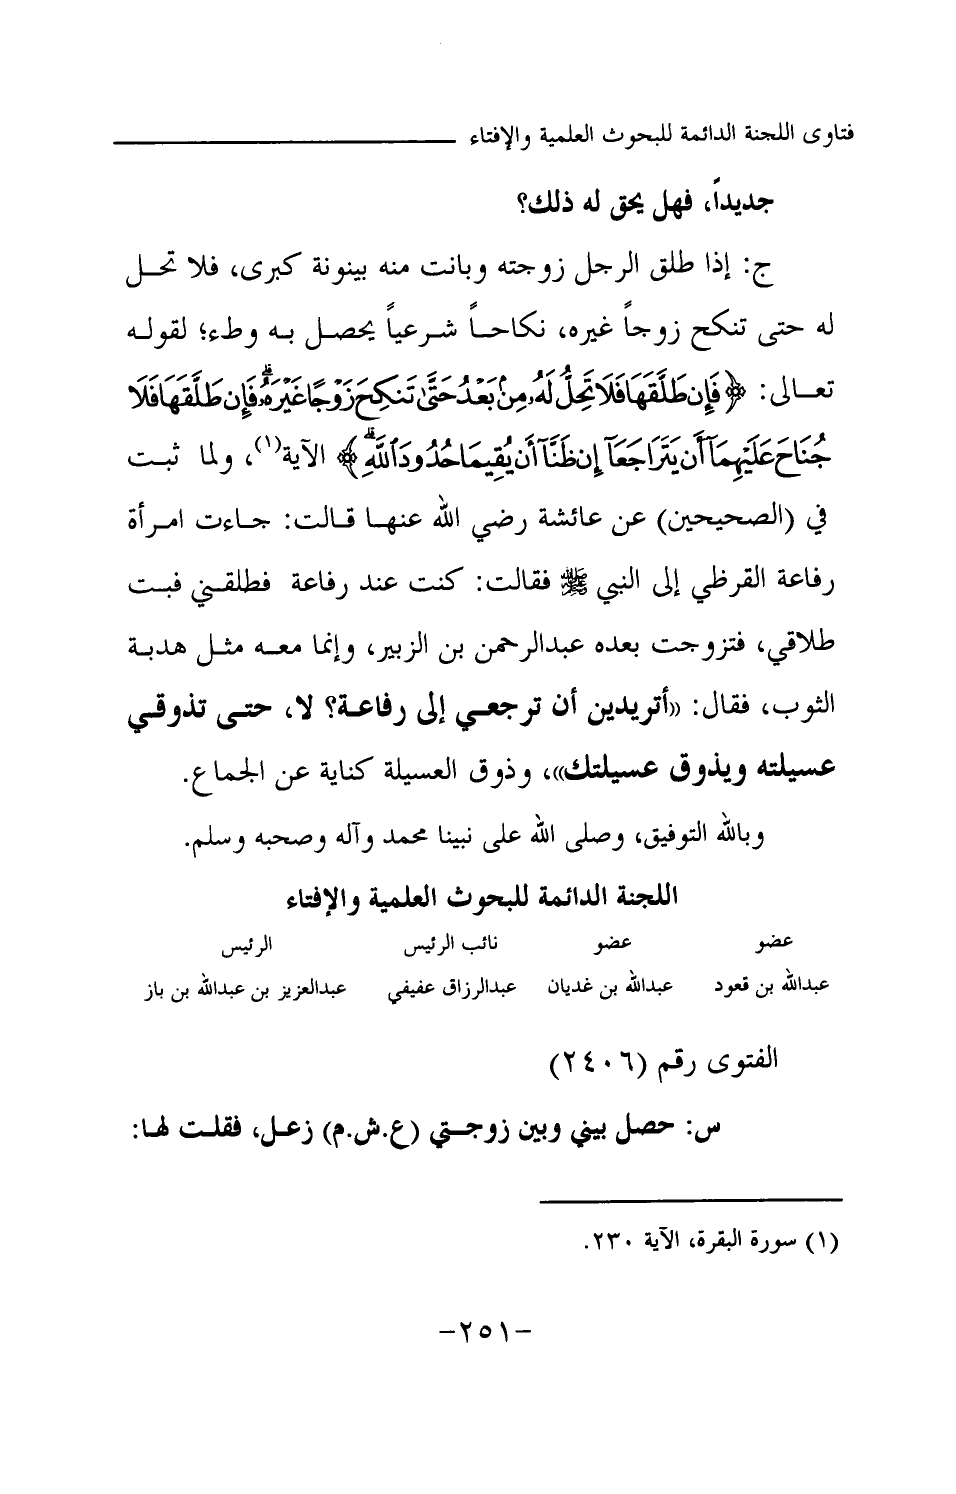 فتاوى اللجنة الدائمة للبحوث العلمية والإفتاء
جديداً، فهل يحق له ذلك؟
ج: إذا طلق الرجل زوجته وبانت منه بينونة كبرى، فلا تحل
له حتى تنكح زوجاً غيره، نكاحاً شرعياً يحصل به وطء؛ لقوله
تعالى: ﴿فَإِن طَلَّقَهَا فَلَا تَحِلُّ لَهُۥ مِنۢ بَعْدُ حَتَّىٰ تَنكِحَ زَوْجًا غَيْرَهُۥۗ فَإِن طَلَّقَهَا فَلَا
جُنَاحَ عَلَيْهِمَآ أَن يَتَرَاجَعَآ إِن ظَنَّآ أَن يُقِيمَا حُدُودَ ٱللَّهِۗ﴾ الآية(١)، ولما ثبت
في (الصحيحين) عن عائشة رضي الله عنها قالت: جاءت امرأة
رفاعة القرظي إلى النبي ﷺ فقالت: كنت عند رفاعة فطلقني فبت
طلاقي، فتزوجت بعده عبدالرحمن بن الزبير، وإنما معه مثل هدبة
الثوب، فقال: «أتريدين أن ترجعي إلى رفاعة؟ لا، حتى تذوقي
عسيلته ويذوق عسيلتك»، وذوق العسيلة كناية عن الجماع.
وبالله التوفيق، وصلى الله على نبينا محمد وآله وصحبه وسلم.
اللجنة الدائمة للبحوث العلمية والإفتاء
عضو عضو نائب الرئيس الرئيس
عبدالله بن قعود عبدالله بن غديان عبدالرزاق عفيفي عبدالعزيز بن عبدالله بن باز
الفتوى رقم (٢٤٠٦)
س: حصل بيني وبين زوجتي (ع.ش.م) زعل، فقلت لها:
(١) سورة البقرة، الآية ٢٣٠.
-٢٥١-